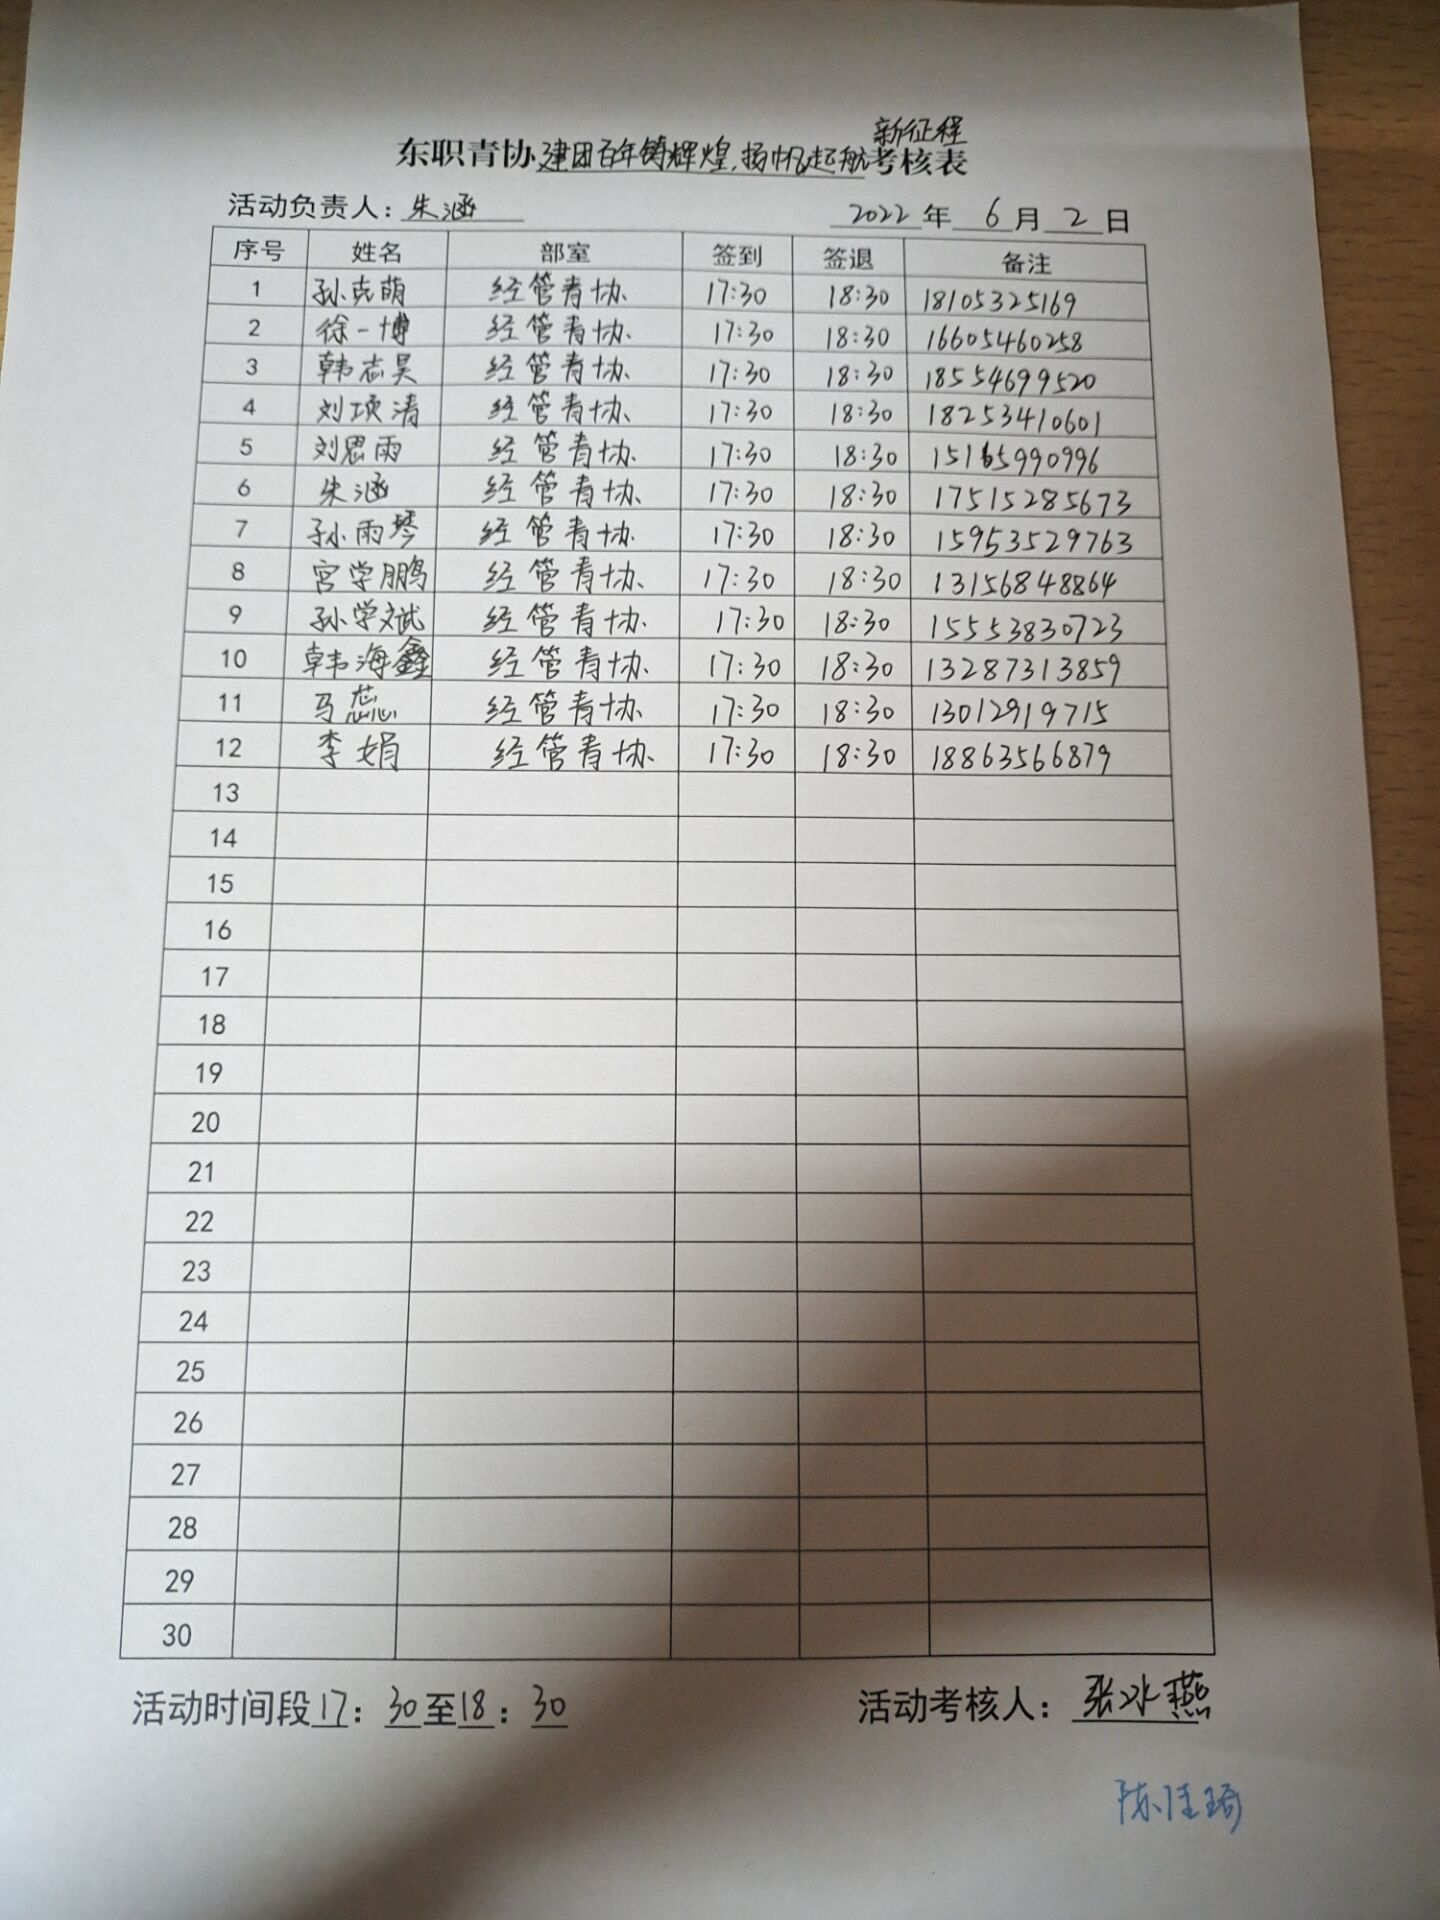 东职青协建团百年铸辉煌,扬帆起航新征程考核表
活动负责人：朱涵 2022年 6月2日
序号 姓名 部室 签到 签退 备注
1 孙克萌 经管青协 17:30 18:30 18105325169
2 徐一博 经管青协 17:30 18:30 16605460258
3 韩志昊 经管青协 17:30 18:30 18554699520
4 刘项清 经管青协 17:30 18:30 18253410601
5 刘恩雨 经管青协 17:30 18:30 15165990996
6 朱涵 经管青协 17:30 18:30 17515285673
7 孙雨琴 经管青协 17:30 18:30 15953529763
8 宫学鹏 经管青协 17:30 18:30 13156848864
9 孙学斌 经管青协 17:30 18:30 15553830723
10 韩海鑫 经管青协 17:30 18:30 13287313859
11 马蕊 经管青协 17:30 18:30 13012919715
12 李娟 经管青协 17:30 18:30 18863566879
13
14
15
16
17
18
19
20
21
22
23
24
25
26
27
28
29
30
活动时间段17：30至18：30 活动考核人：张冰燕
陈佳琦